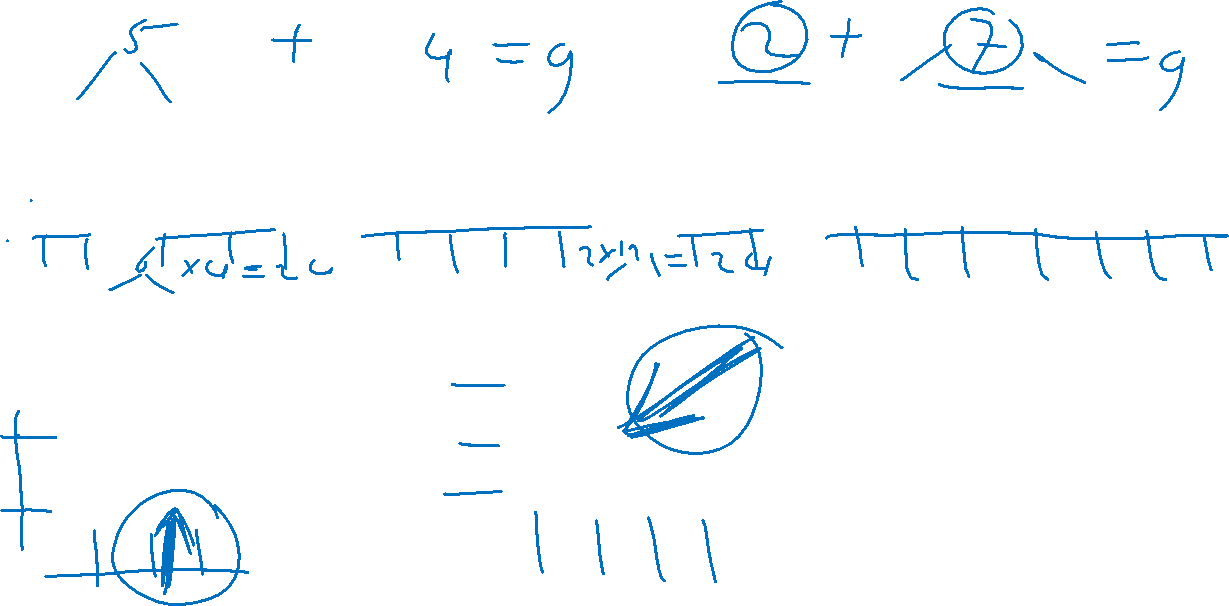 5 + 4 = 9 2 + 7 = 9
6 x 4 = 24 2 x 12 = 24